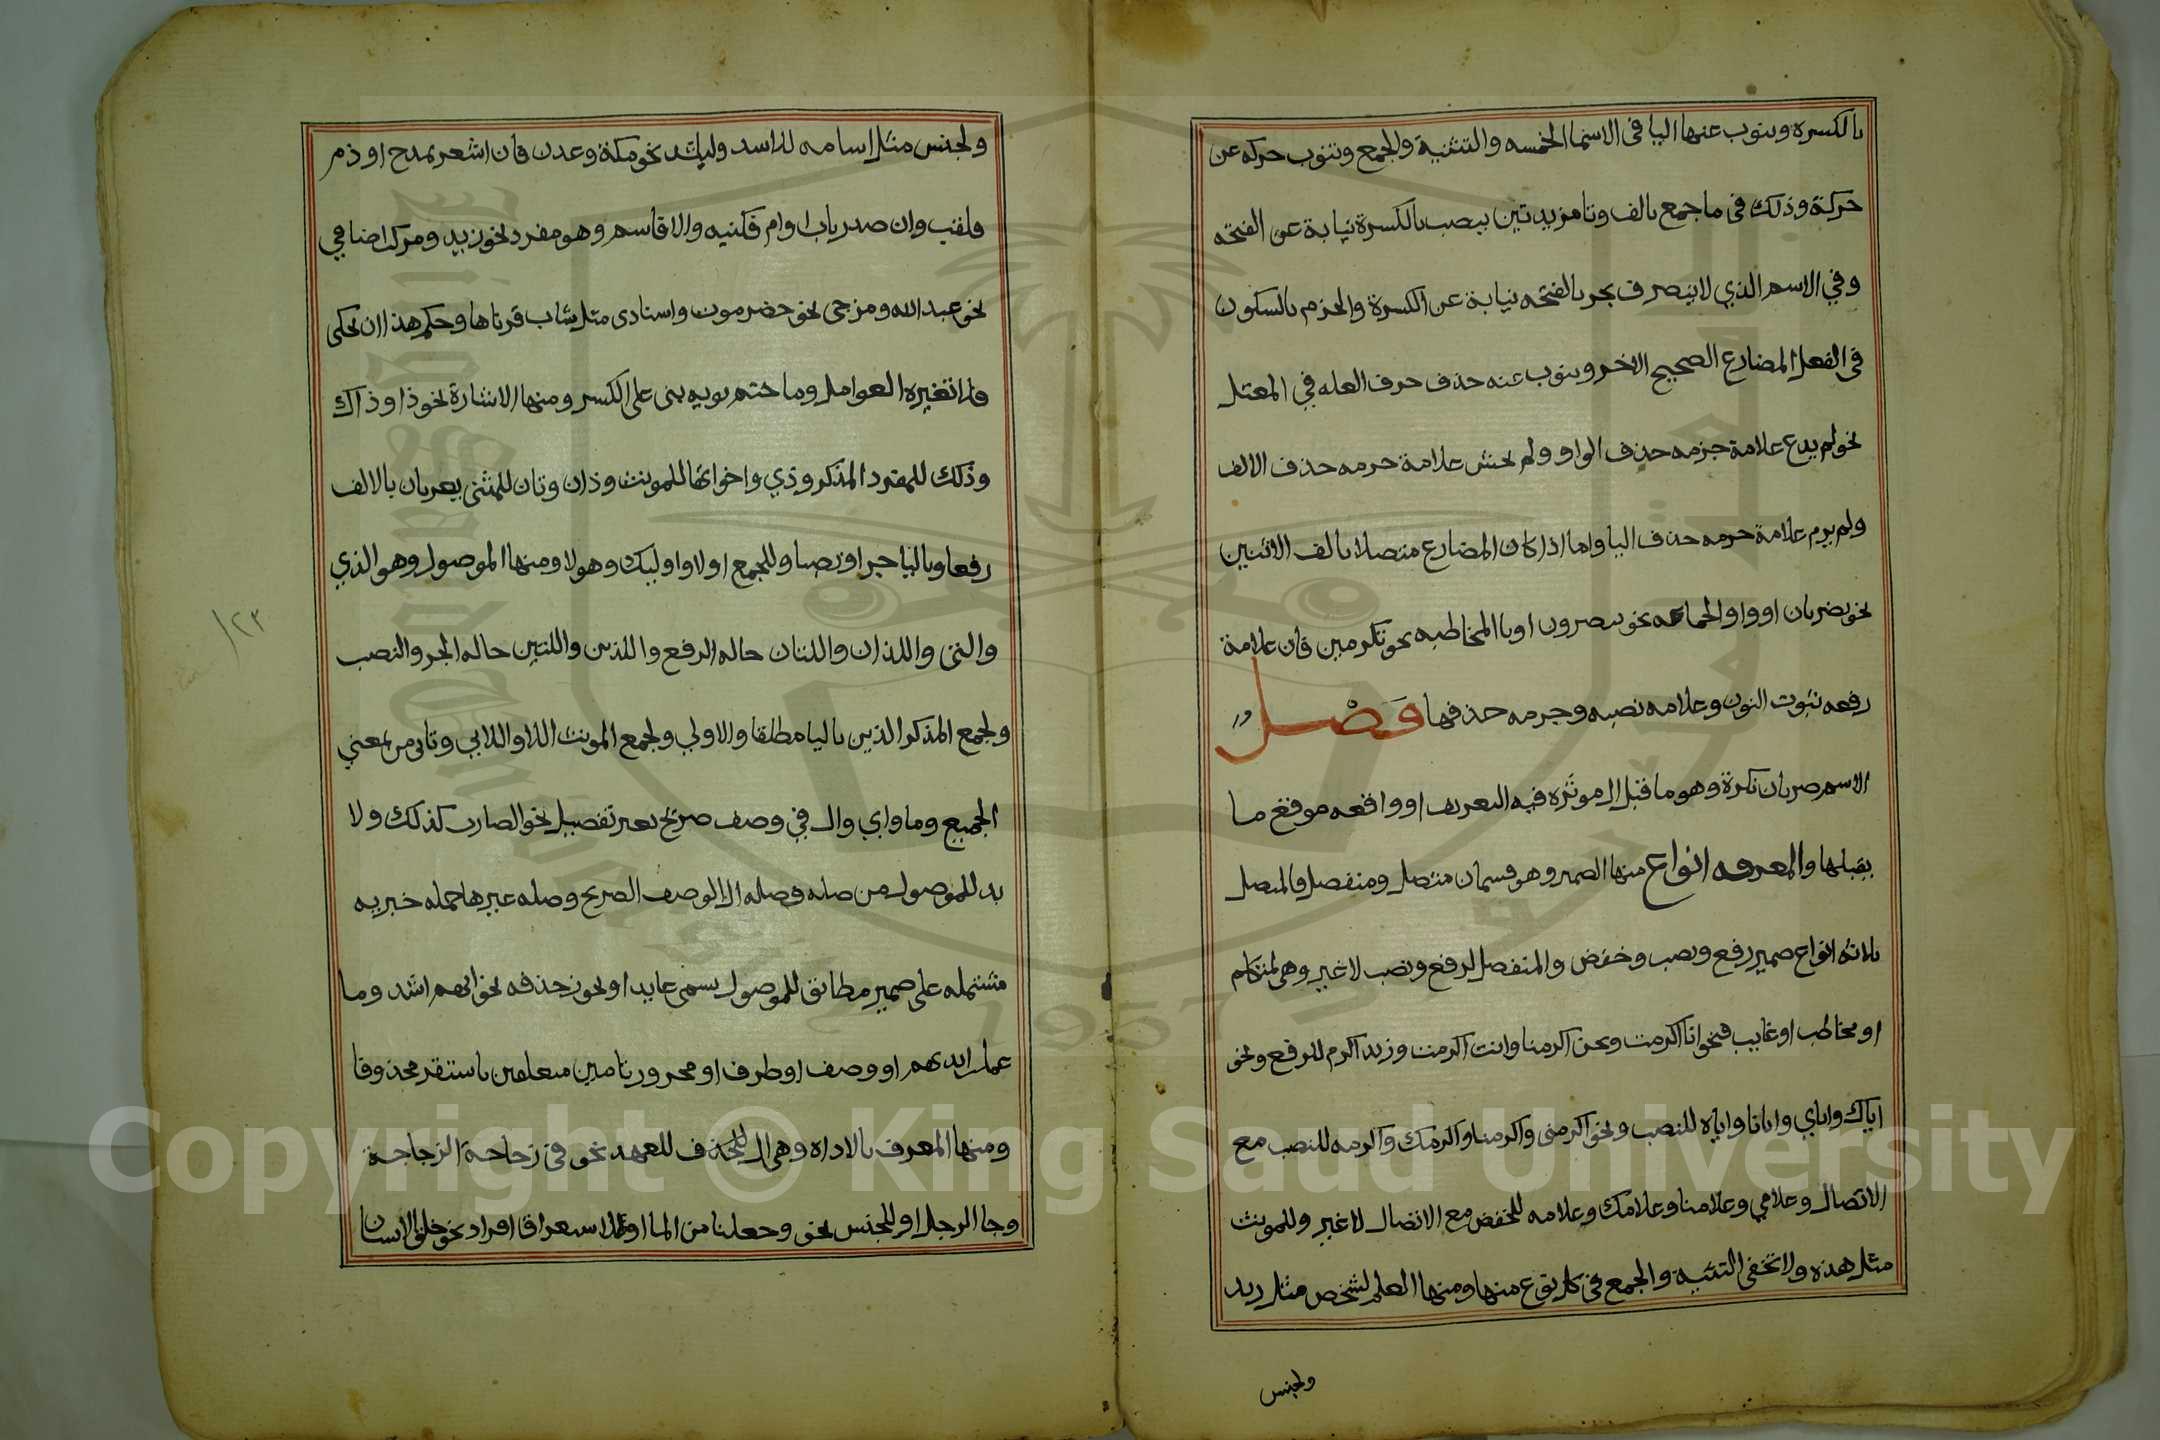 بالكسرة وينوب عنها اليا في الاسما الخمسه والتثنية والجمع وتنوب حركه عن
حركة وذلك في ما جمع بالف وتا مزيدتين ينصب بالكسرة نيابة عن الفتحه
وفي الاسم الذي لا ينصرف يجر بالفتحه نيابة عن الكسرة والجزم بالسكون
في الفعل المضارع الصحيح الاخر وينوب عنه حذف حرف العله في المعتل
نحو لم يدع علامة جزمه حذف الواو ولم يخش علامة جزمه حذف الالف
ولم يرم علامة جزمه حذف اليا واما اذا كان المضارع متصلا بالف الاثنين
نحو يضربان او واو الجماعه نحو ينصرون او يا المخاطبه نحو تكرمين فان علامة
رفعه ثبوت النون وعلامه نصبه وجزمه حذفها فصل
الاسم ضربان نكرة وهو ما قبل ال موثره فيه التعريف او واقعه موقع ما
يقبلها والمعرفه انواع منها الضمير وهو قسمان متصل ومنفصل فالمتصل
ثلاثه انواع ضمير رفع ونصب وخفض والمنفصل لرفع ونصب لا غير وهي لمتكلم
او مخاطب او غايب فنحو انا اكرمت ونحن اكرمنا وانت اكرمت وزيد اكرم للرفع ونحو
اياك واياي وايانا واياه للنصب ونحو اكرمني واكرمنا واكرمك واكرمه للنصب مع
الاتصال وغلامي وغلامنا وغلامك وغلامه للخفض مع الاتصال لا غير وللمونث
مثل هذه ولا تخفى التثنية والجمع في كل نوع منها ومنها العلم لشخص مثل زيد
ولجنس
ولجنس مثل اسامه للاسد ولبلد نحو مكة وعدن فان اشعر بمدح او ذم
فلقب وان صدر باب او ام فكنيه والا فاسم وهو مفرد نحو زيد ومركب اضافي
نحو عبد الله ومزجي نحو حضرموت واسنادى مثل شاب قرناها وحكم هذا ان يحكى
فلا تغيره العوامل وما ختم بويه بنى على الكسر ومنها الاشارة نحو ذا وذاك
وذلك للمفرد المذكر وذي واخواتها للمونث وذان وتان للمثنى يعربان بالالف
رفعا وباليا جرا ونصبا وللجمع اولا واوليك وهولا ومنها الموصول وهو الذي
والتي واللذان واللتان حاله الرفع واللذين واللتين حاله الجر والنصب
ولجمع المذكر الذين باليا مطلقا والاولي ولجمع المونث اللا واللايي وتاتى من بمعني
الجميع وما واي وال في وصف صريح بغير تفضيل نحو الضارب كذلك ولا
بد للموصول من صله فصله ال الوصف الصريح وصله غيرها جمله خبريه
مشتمله على ضمير مطابق للموصول يسمى عايدا ويجوز حذفه نحو ايهم اشد وما
عملت ايديهم او وصف او ظرف او مجرور تامين متعلقين باستقر محذوفا
ومنها المعرف بالاداه وهي ال للعهد نحو في زجاجة الزجاجة
وجا الرجل او للجنس نحو وجعلنا من الما او لاستغراق افراد نحو خلق الانسان
١٢٣
Copyright © King Saud University
1957